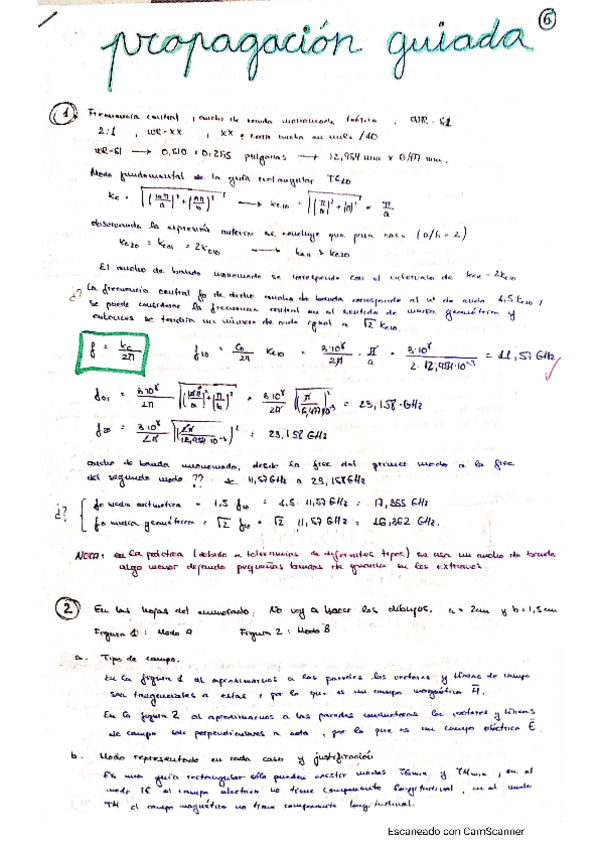 6
propagación guiada
1 Frecuencia central, ancho de banda monomodo teórico, WR-51
2:1, WR-XX, XX = en mils /10
WR-51 → 0,510 × 0,255 pulgadas → 12,954 mm × 6,477 mm.
Modo fundamental de la guía rectangular TE10
kc = √((mπ/a)² + (nπ/b)²) → kc10 = √((π/a)² + (0)²) = π/a
observando la expresión anterior se concluye que para (a/b = 2)
kc20 = kc01 = 2kc10 → kc11 > kc20
El ancho de banda monomodo se corresponde con el intervalo de kc10 - 2kc10
¿? La frecuencia central f0 de dicho ancho de banda corresponde al nº de onda 1,5 kc10,
se puede considerar la frecuencia central en el sentido de media geométrica y
entonces se tendría un número de onda igual a √2 kc10.
f = kc/2π f10 = c0/2π kc10 = 3·10⁸/2π · π/a = 3·10⁸/2·12,954·10⁻³ = 11,57 GHz
f01 = 3·10⁸/2π √((0π/a)² + (π/b)²) = 3·10⁸/2π √((π/6,477)10⁻³)² = 23,158 GHz
f20 = 3·10⁸/2π √(2π/12,954·10⁻³)² = 23,158 GHz
ancho de banda monomodo, desde la frec del primer modo a la frec
del segundo modo ?? de 11,57GHz a 23,158GHz
¿? f0 media aritmética = 1,5 f10 = 1,5 · 11,57 GHz = 17,355 GHz
f0 media geométrica = √2 f10 = √2 · 11,57 GHz = 16,362 GHz.
NOTA: en la práctica (debido a tolerancias de diferentes tipos) se usa un ancho de banda
algo menor dejando pequeñas bandas de guarda en los extremos.
2 En las hojas del enunciado. No voy a hacer los dibujos. a = 2cm y b = 1,5 cm
Figura 1: Modo A Figura 2: Modo B
a. Tipo de campo.
En la figura 1 al aproximarnos a las paredes los vectores y líneas de campo
son tangenciales a estas, por lo que es un campo magnético H.
En la figura 2 al aproximarnos a las paredes conductoras los vectores y líneas
de campo son perpendiculares a esta, por lo que es un campo eléctrico E.
b. Modo representado en cada caso y justificación
En una guía rectangular sólo pueden existir modos TEmn y TMmn, en el
modo TE el campo electrico no tiene componente longitudinal, en el modo
TM el campo magnético no tiene componente longitudinal.
Escaneado con CamScanner